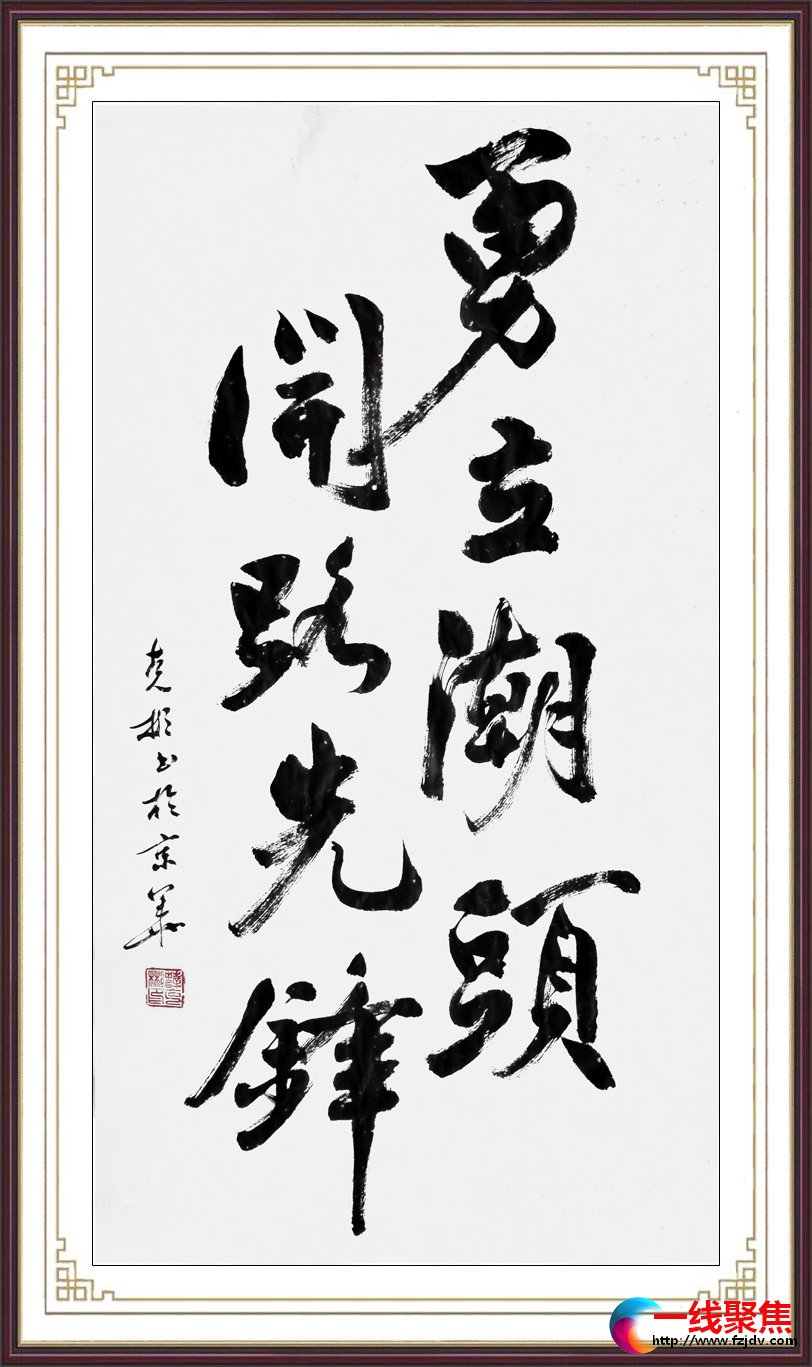 勇立潮頭
開路先鋒
克彬書於京華
一线聚焦
http://www.fzjdv.com